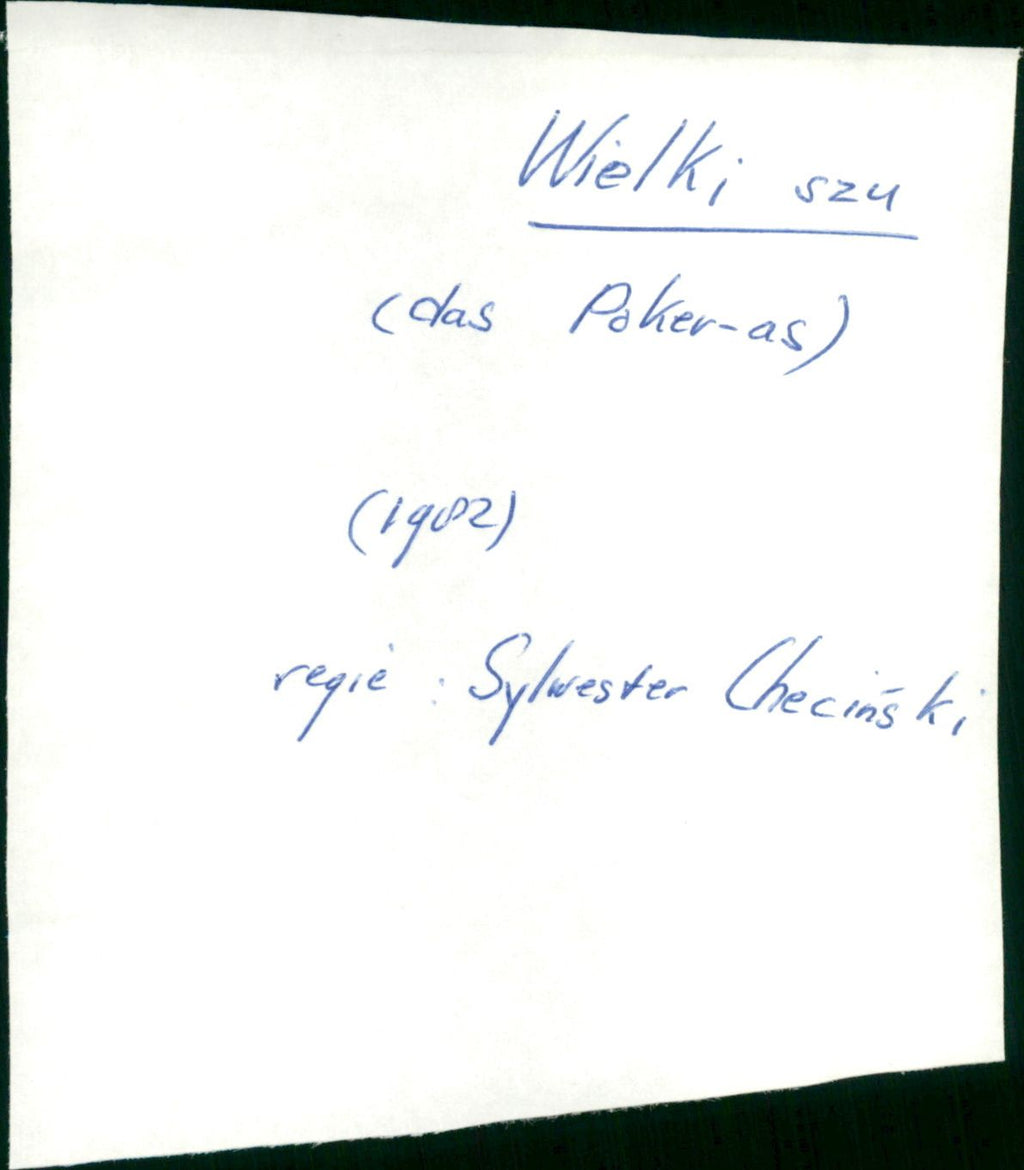 Wielki szu
(das Poker-as)
(1982)
regie : Sylwester Checiński